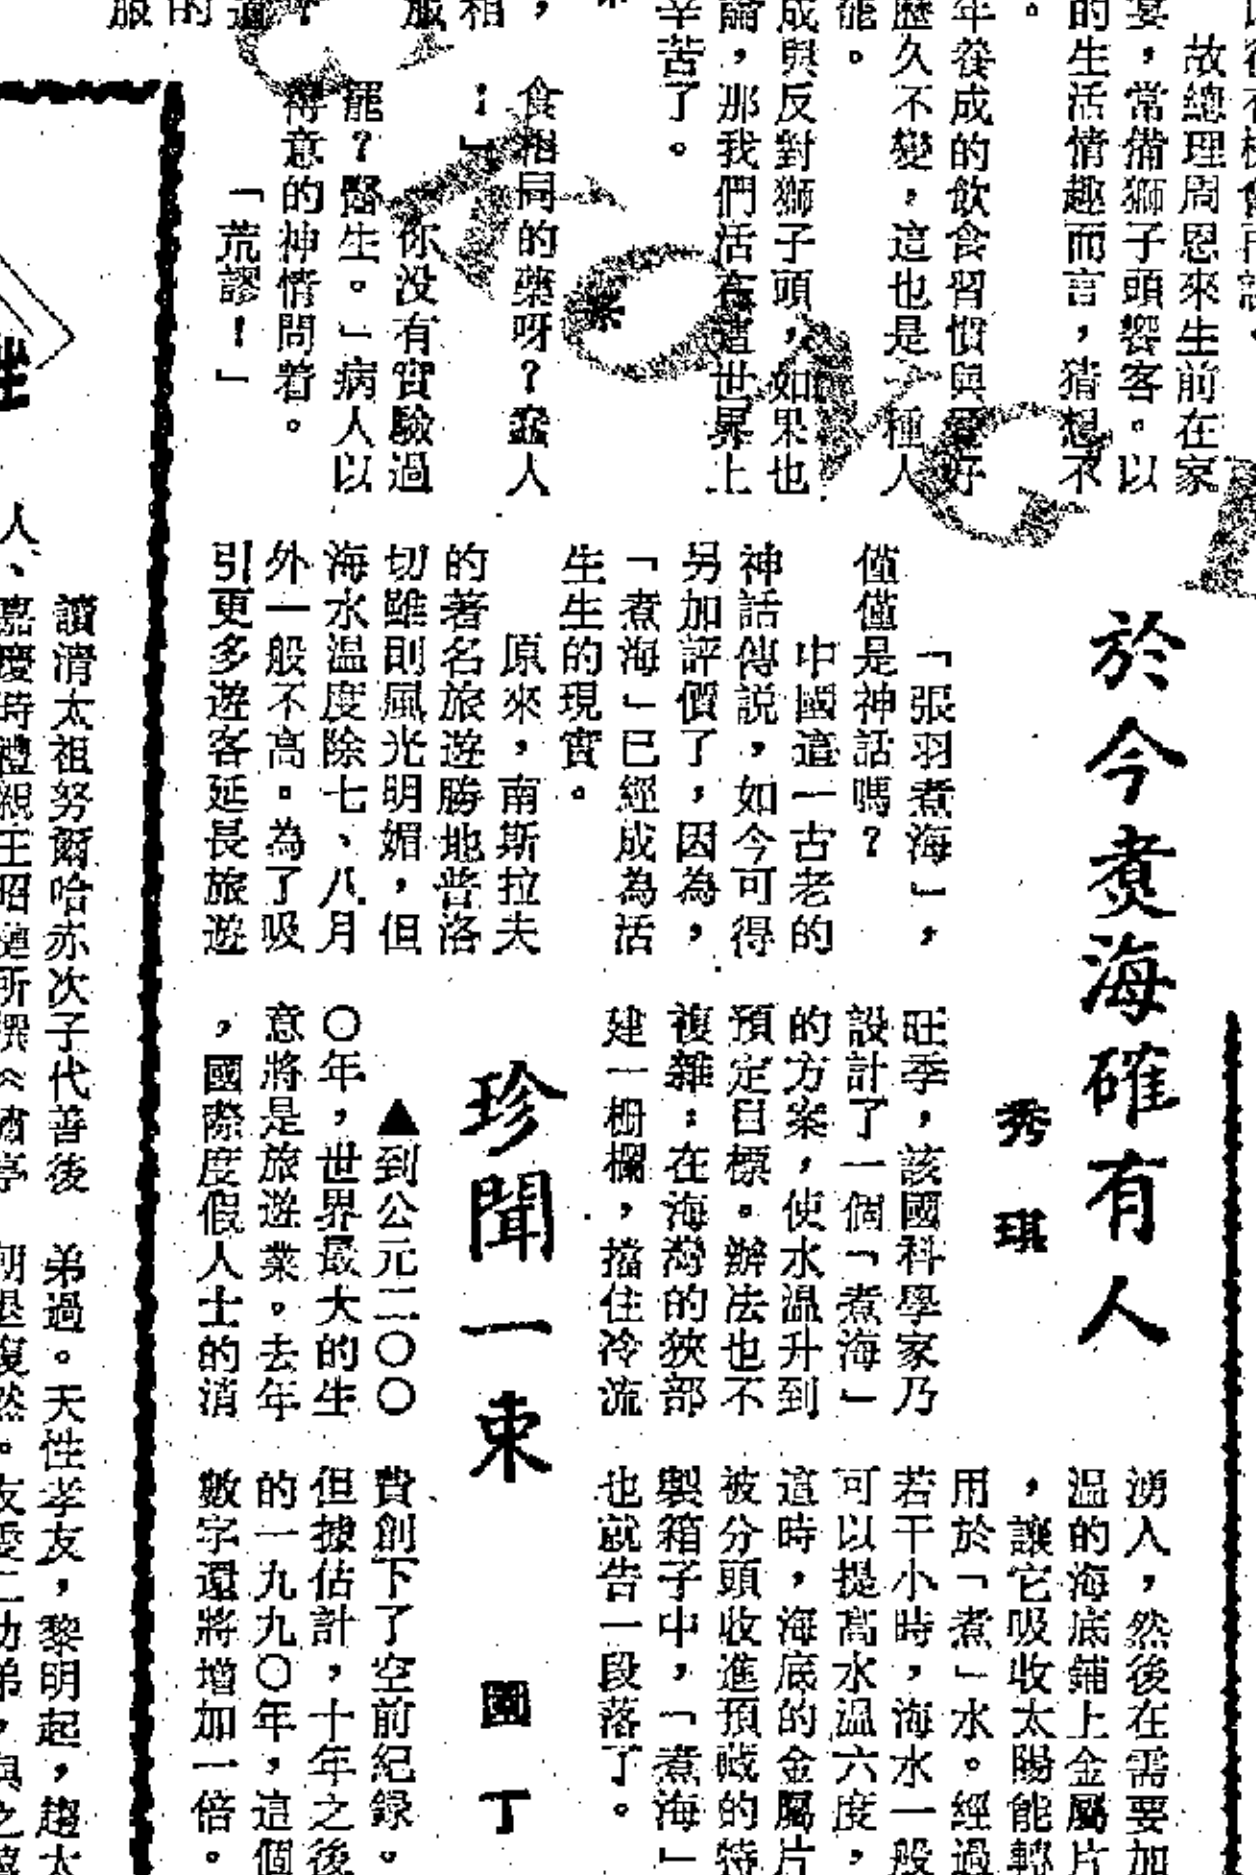 故總理周恩來生前在家
宴，常備獅子頭饗客。以
的生活情趣而言，猜想不
年養成的飲食習慣與愛好
歷久不變，這也是一種人
成與反對獅子頭，如果也
論，那我們活在這世界上
辛苦了。
食相同的藥呀？蠢人
！」
你没有實驗過
罷？醫生。」病人以
得意的神情問着。
「荒謬！」
於今煮海確有人
秀琪
「張羽煮海」，
僅僅是神話嗎？
中國這一古老的
神話傳説，如今可得
另加評價了，因為，
「煮海」已經成為活
生生的現實。
原來，南斯拉夫
的著名旅遊勝地普洛
切雖則風光明媚，但
海水温度除七、八月
外一般不高。為了吸
引更多遊客延長旅遊
旺季，該國科學家乃
設計了一個「煮海」
的方案，使水温升到
預定目標。辦法也不
複雜：在海灣的狹部
建一栅欄，擋住冷流
湧入，然後在需要加
温的海底鋪上金屬片
，讓它吸收太陽能輕
用於「煮」水。經過
若干小時，海水一般
可以提高水温六度，
這時，海底的金屬片
被分頭收進預藏的特
製箱子中，「煮海」
也就告一段落了。
珍聞一束
園丁
▲到公元二〇〇
〇年，世界最大的生
意將是旅遊業。去年
，國際度假人士的消
費創下了空前紀録。
但據估計，十年之後
的一九九〇年，這個
數字還將增加一倍。
讀清太祖努爾哈赤次子代善後
人、嘉慶時禮親王昭槤所撰
弟過。天性孝友，黎明起，趨太